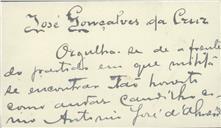 José Gonçalves da Cruz
Orgulha-se de a frente
do partido em que milita
se encontrar tão honesto
como
nio Antonio José d'Almeida